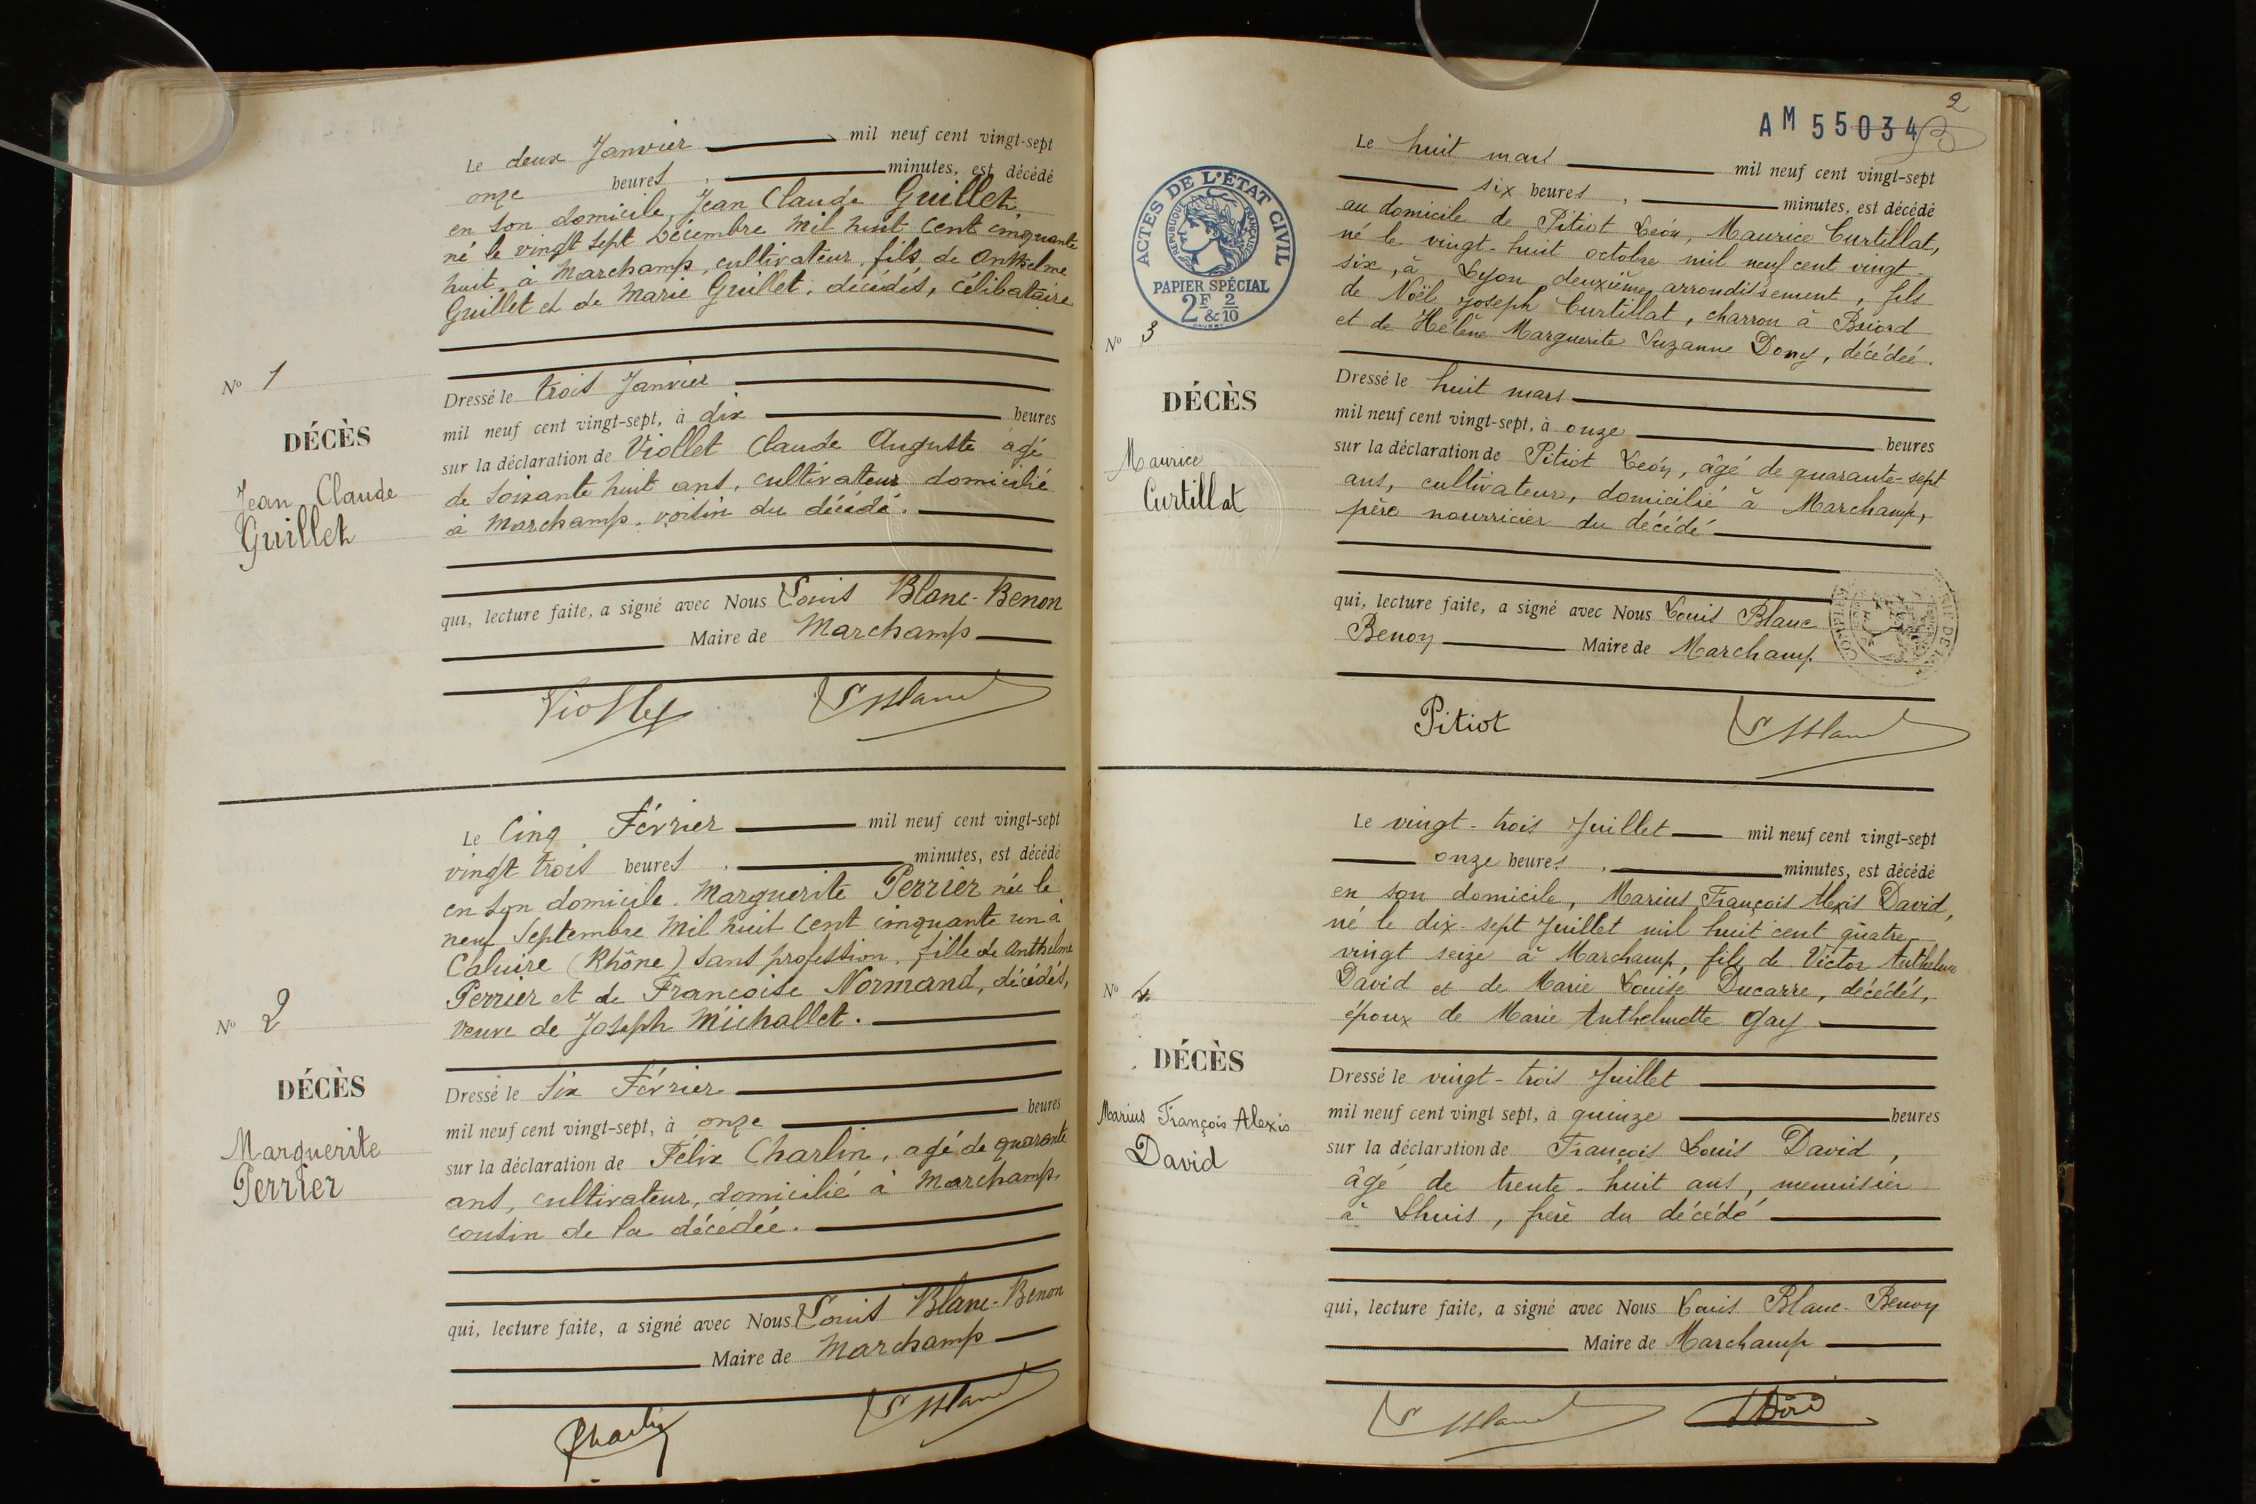 Le deux Janvier mil neuf cent vingt-sept
onze heures, minutes, est décédé
en son domicile, Jean Claude Guillet,
né le vingt sept Décembre mil huit cent cinquante
huit, à Marchamp, cultivateur, fils de Anthelme
Guillet et de Marie Guillet, décédés, célibataire
N° 1
DÉCÈS
Jean Claude
Guillet
Dressé le trois Janvier
mil neuf cent vingt-sept, à dix heures
sur la déclaration de Viollet Claude Auguste agé
de soixante huit ans, cultivateur domicilié
à Marchamp, voisin du décédé.
qui, lecture faite, a signé avec Nous Louis Blanc-Benon
Maire de Marchamp
Viollet
L Blanc
Le Cinq Février mil neuf cent vingt-sept
vingt trois heures, minutes, est décédé
en son domicile. Marguerite Perrier née le
neuf Septembre Mil huit cent cinquante un à
Caluire (Rhône) sans profession, fille de Anthelme
Perrier et de Françoise Normand, décédés,
veuve de Joseph Michallet.
N° 2
DÉCÈS
Marguerite
Perrier
Dressé le six Février
mil neuf cent vingt-sept, à onze heures
sur la déclaration de Félix Charlin, agé de quarante
ans, cultivateur, domicilié à Marchamp
cousin de la décédée.
qui, lecture faite, a signé avec Nous Louis Blanc-Benon
Maire de Marchamp
Charlin
L Blanc
2
AM 55034
ACTES DE L'ÉTAT CIVIL
RÉPUBLIQUE FRANÇAISE
PAPIER SPÉCIAL
2F & 2/10
Le huit mars mil neuf cent vingt-sept
six heures, minutes, est décédé
au domicile de Pitiot Léon, Maurice Curtillat,
né le vingt-huit octobre mil neuf cent vingt-
six, à Lyon deuxième arrondissement, fils
de Noël Joseph Curtillat, charron à Briord
et de Hélène Marguerite Suzanne Dony, décédée.
N° 3
DÉCÈS
Maurice
Curtillat
Dressé le huit mars
mil neuf cent vingt-sept, à onze heures
sur la déclaration de Pitiot Léon, âgé de quarante-sept
ans, cultivateur, domicilié à Marchamp,
père nourricier du décédé
qui, lecture faite, a signé avec Nous Louis Blanc
Benon Maire de Marchamp.
Pitiot
L Blanc
Le vingt-trois Juillet mil neuf cent vingt-sept
onze heures, minutes, est décédé
en son domicile, Marius François Alexis David,
né le dix-sept Juillet mil huit cent quatre
vingt seize à Marchamp, fils de Victor Anthelme
David et de Marie Louise Ducarre, décédés,
époux de Marie Anthelmette Gay
N° 4
DÉCÈS
Marius François Alexis
David
Dressé le vingt-trois Juillet
mil neuf cent vingt sept, à quinze heures
sur la déclaration de François Louis David,
âgé de trente-huit ans, menuisier
à Lhuis, frère du décédé
qui, lecture faite, a signé avec Nous Louis Blanc-Benon
Maire de Marchamp
L Blanc